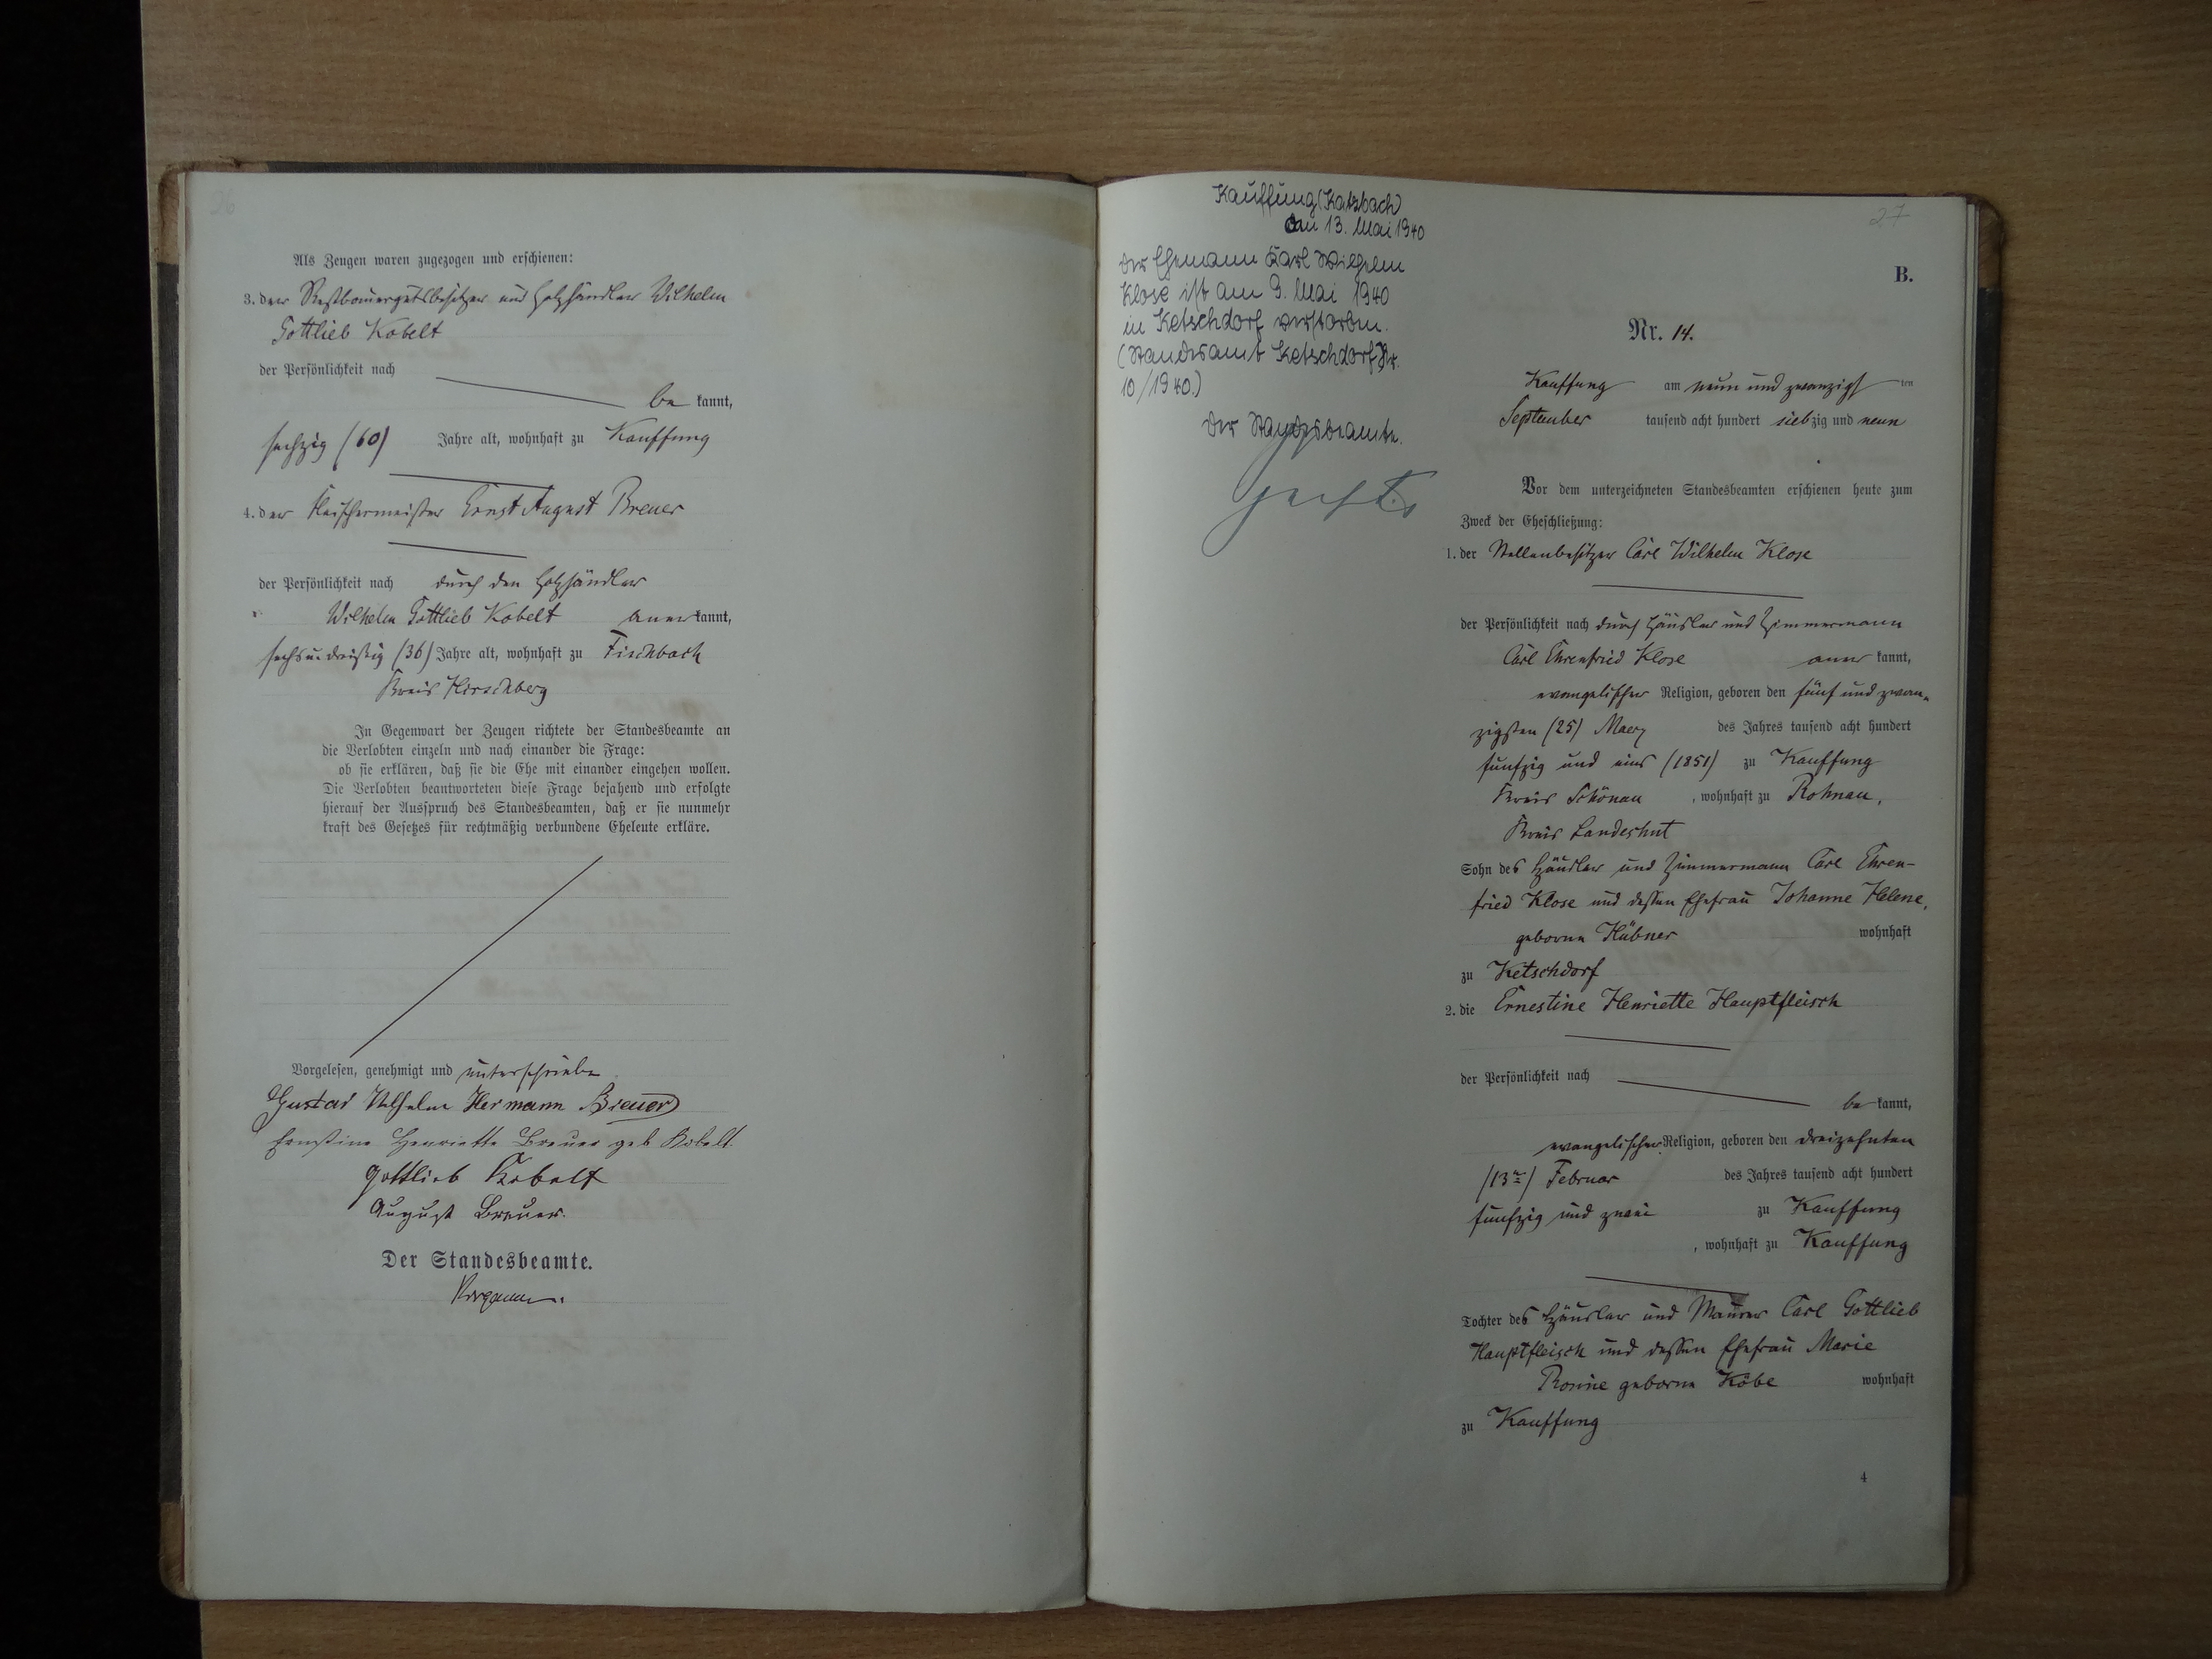 26
Als Zeugen waren zugezogen und erschienen:
3. der Restbauergutsbesitzer und Holzhändler Wilhelm
Gottlieb Kobelt
der Persönlichkeit nach
be kannt,
sechzig (60) Jahre alt, wohnhaft zu Kauffung
4. der Fleischermeister Ernst August Breuer
der Persönlichkeit nach durch den Holzhändler
Wilhelm Gottlieb Kobelt aner kannt,
sechsundreißig (36) Jahre alt, wohnhaft zu Fischbach
Kreis Hirschberg
In Gegenwart der Zeugen richtete der Standesbeamte an
die Verlobten einzeln und nach einander die Frage:
ob sie erklären, daß sie die Ehe mit einander eingehen wollen.
Die Verlobten beantworteten diese Frage bejahend und erfolgte
hierauf der Ausspruch des Standesbeamten, daß er sie nunmehr
kraft des Gesetzes für rechtmäßig verbundene Eheleute erkläre.
Vorgelesen, genehmigt und unterschrieben
Gustav Wilhelm Hermann Breuer
Ernstine Henriette Breuer geb Kobelt.
Gottlieb Kobelt
August Breuer.
Der Standesbeamte.
Kauffung (Katzbach)
den 13. Mai 1940
Der Ehemann Karl Wilhelm
Klose ist am 9. Mai 1940
in Ketschdorf verstorben.
(Standesamt Ketschdorf Nr.
10/1940.)
Der Standesbeamte.
27
B.
Nr. 14.
Kauffung am neun und zwanzigsten
September tausend acht hundert siebzig und neun
Vor dem unterzeichneten Standesbeamten erschienen heute zum
Zweck der Eheschließung:
1. der Stellenbesitzer Carl Wilhelm Klose
der Persönlichkeit nach durch Häusler und Zimmermann
Carl Ehrenfried Klose aner kannt,
evangelischer Religion, geboren den fünf und zwan-
zigsten (25) Maerz des Jahres tausend acht hundert
funfzig und eins (1851) zu Kauffung
Kreis Schönau, wohnhaft zu Rohnau,
Kreis Landeshut
Sohn des Häusler und Zimmermann Carl Ehren-
fried Klose und dessen Ehefrau Johanne Helene,
geborne Hübner wohnhaft
zu Ketschdorf
2. die Ernestine Henriette Hauptfleisch
der Persönlichkeit nach
be kannt,
evangelischer Religion, geboren den dreizehnten
(13ten) Februar des Jahres tausend acht hundert
funfzig und zwei zu Kauffung
, wohnhaft zu Kauffung
Tochter des Häusler und Maurer Carl Gottlieb
Hauptfleisch und dessen Ehefrau Marie
Rosine geborne Köbe wohnhaft
zu Kauffung
4